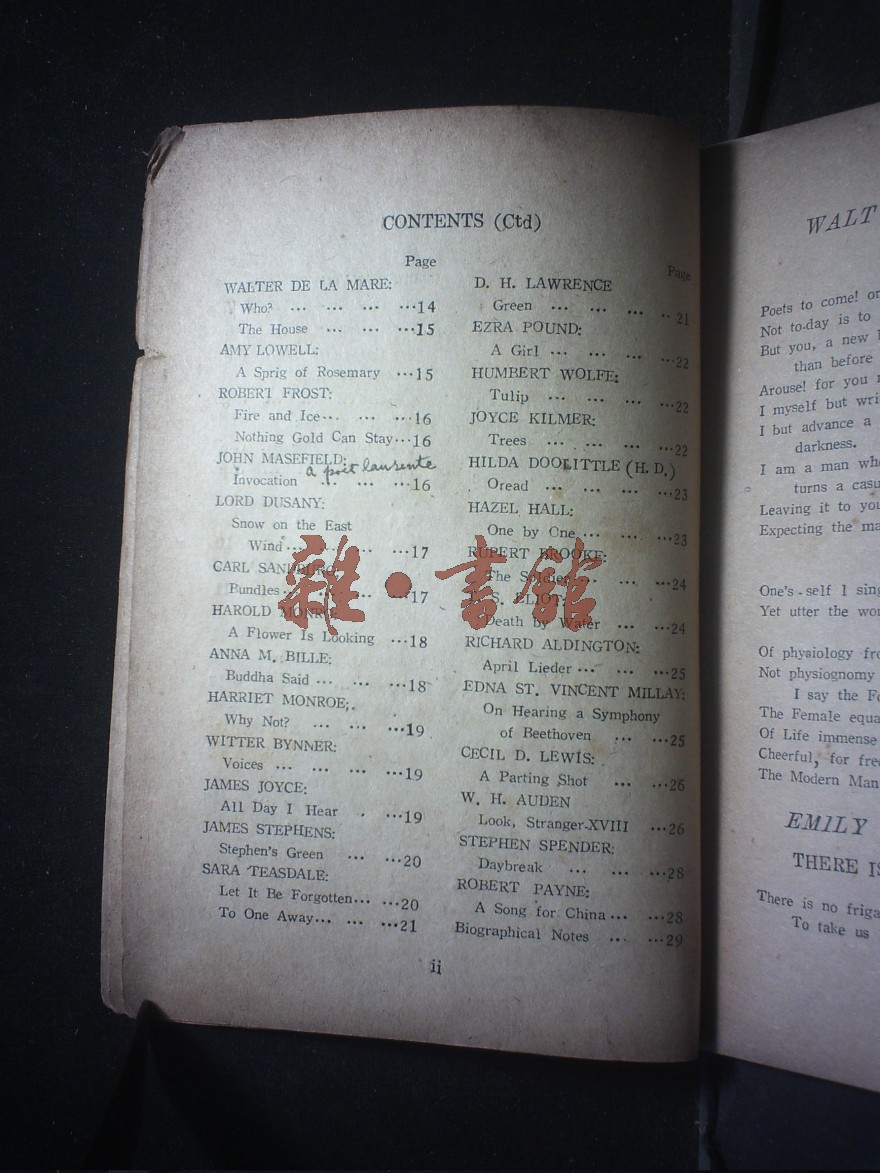 CONTENTS (Ctd)
Page
WALTER DE LA MARE:
Who? ... ... ... ...14
The House ... ... ...15
AMY LOWELL:
A Sprig of Rosemary ...15
ROBERT FROST:
Fire and Ice... ... ...16
Nothing Gold Can Stay...16
JOHN MASEFIELD:
a poet laurente
Invocation ... ... ...16
LORD DUSANY:
Snow on the East
Wind... ... ... ...17
CARL SANDBURG:
Bundles... ... ... ...17
HAROLD MONRO:
A Flower Is Looking ...18
ANNA M. BILLE:
Buddha Said ... ... ...18
HARRIET MONROE;
Why Not? ... ... ...19
WITTER BYNNER:
Voices ... ... ... ...19
JAMES JOYCE:
All Day I Hear . ...19
JAMES STEPHENS:
Stephen's Green ... ...20
SARA TEASDALE:
Let It Be Forgotten... ...20
To One Away... ... ...21
Page
D. H. LAWRENCE
Green ... ... ... ...21
EZRA POUND:
A Girl ... ... ... ...22
HUMBERT WOLFE:
Tulip ... ... ... ...22
JOYCE KILMER:
Trees ... ... ... ...22
HILDA DOOLITTLE (H. D.)
Oread ... ... ... ...23
HAZEL HALL:
One by One... ... ...23
RUPERT BROOKE:
The Soldier... ... ...24
T. S. ELIOT:
Death by Water ... ...24
RICHARD ALDINGTON:
April Lieder... ... ...25
EDNA ST. VINCENT MILLAY:
On Hearing a Symphony
of Beethoven ... ...25
CECIL D. LEWIS:
A Parting Shot ... ...26
W. H. AUDEN
Look, Stranger-XVIII ...26
STEPHEN SPENDER:
Daybreak ... ... ...28
ROBERT PAYNE:
A Song for China... ...28
Biographical Notes ... ...29
ii
雜·書館
WALT
Poets to come! or
Not to-day is to
But you, a new
than before
Arouse! for you
I myself but wri
I but advance a
darkness.
I am a man who
turns a casu
Leaving it to you
Expecting the ma
One's-self I sing
Yet utter the wor
Of physiology fro
Not physiognomy
I say the Fo
The Female equa
Of Life immense
Cheerful, for free
The Modern Man
EMILY
THERE IS
There is no friga
To take us